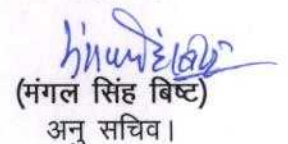 (मंगल सिंह बिष्ट)
अनु सचिव।